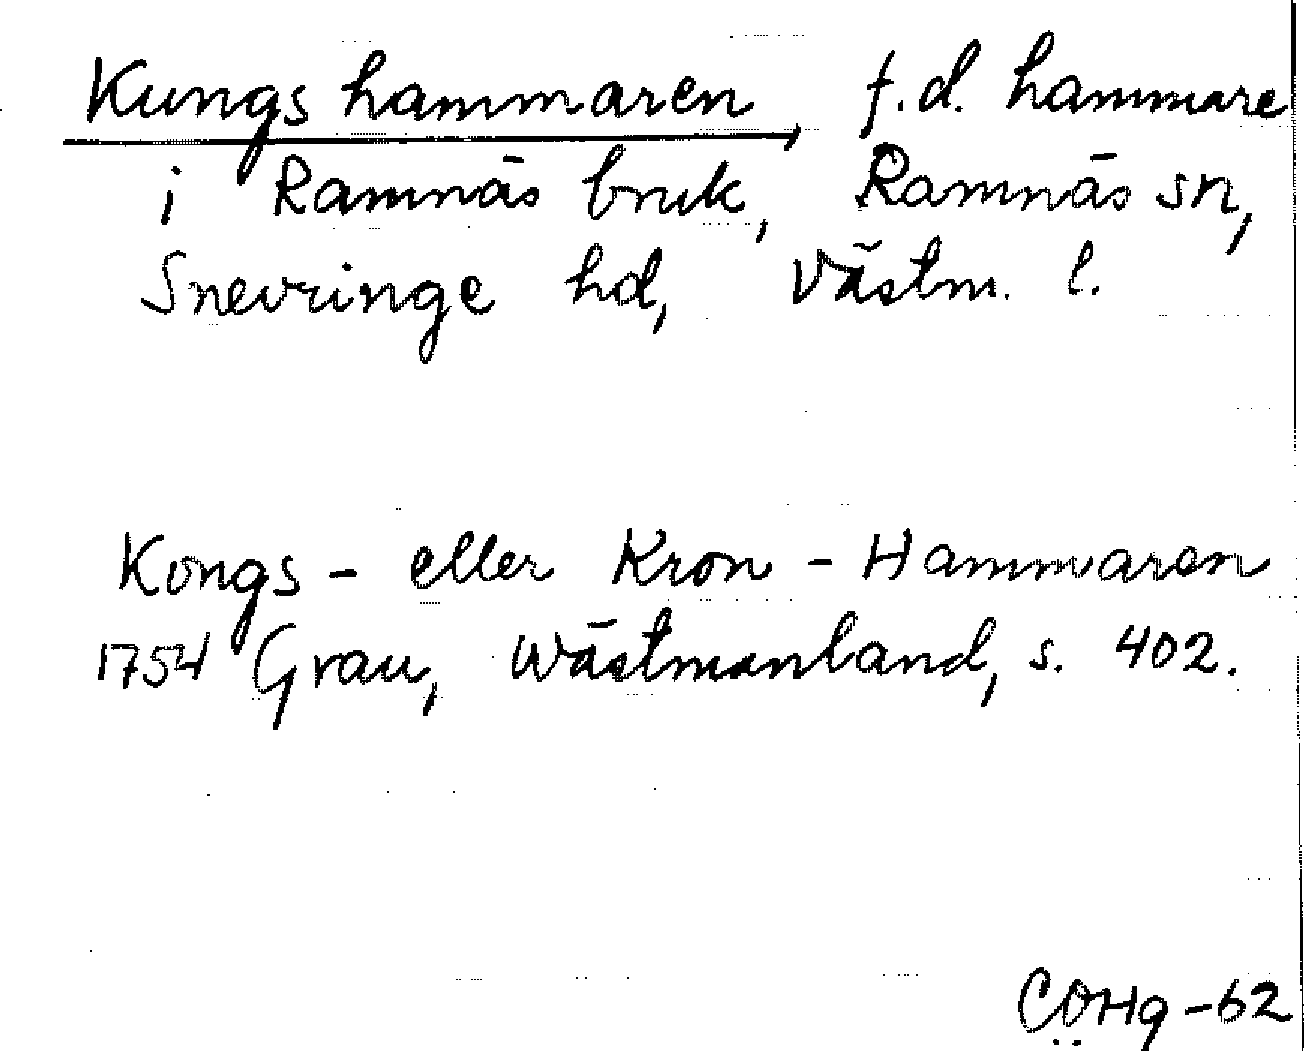 Kungshammaren, f.d. hammare
i Ramnäs bruk, Ramnäs sn,
Snevringe hd, Västm. l.
Kongs- eller Kron-Hammaren
1754 Grau, Wästmanland, s. 402.
CÖHg-62